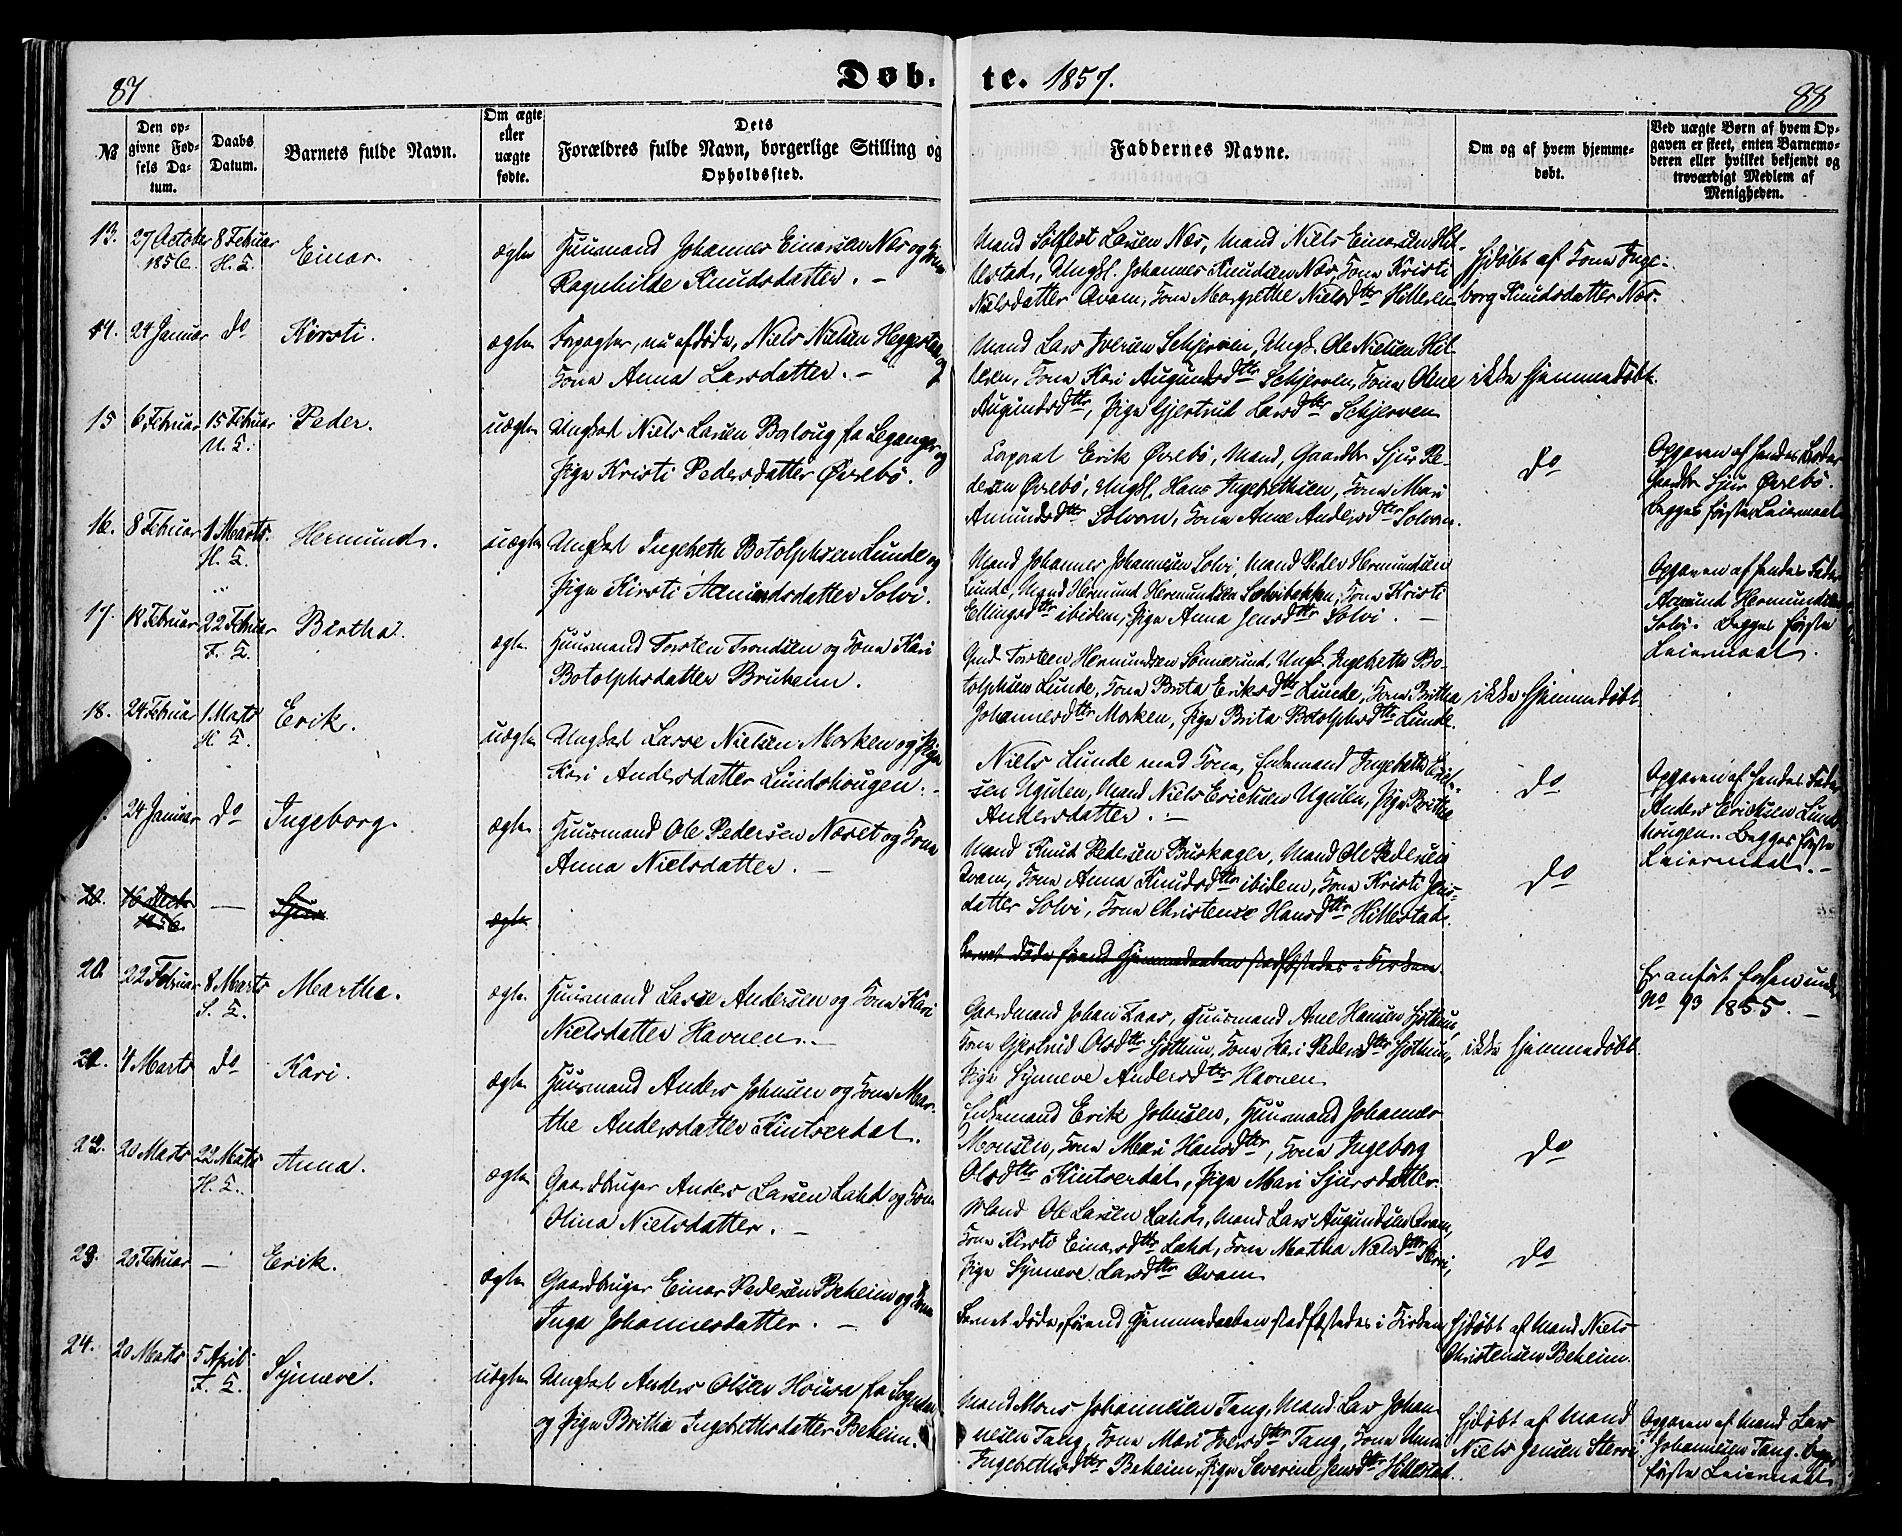 87
Døb-
te. 1857.
88
№
Den op-
givne Fød-
sels Da-
tum.
Daabs
Datum.
Barnets fulde Navn.
Om ægte
eller
uægte
fødte.
Dets
Forældres fulde Navn, borgerlige Stilling og
Opholdssted.
Faddernes Navne.
Om og af hvem hjemme-
døbt.
Ved uægte Børn af hvem Op-
gaven er skeet, enten Barnemo-
deren eller hvilket bekjendt og
troværdigt Medlem af
Menigheden.
13.
27 October
1856
8 Februar
H. S.
Einar.
ægte
Huusmand Johannes Einarsen Næs og Kone
Ragnhilde Knudsdatter.
Mand Sølfest Larsen Næs, Mand Niels Einarsen Hil-
lestad, Ungk. Johannes Knudsen Næs, Kone Kristi
Nielsdatter Qvam, Kone Margrethe Nielsdtr Hilleren
Hjdøbt af Kone Inge-
borg Knudsdatter Næs.
14.
24 Januar
do
Kirsti.
ægte
Forpagter, nu afdøde, Niels Nielsen Heggestad og
Kone Anna Larsdatter.
Mand Lars Iversen Schjerven, Ungk. Ole Nielsen Hil-
leren, Kone Kari Augundsdtr Schjerven, Kone Oline
Augundsdtr, Pige Gjertrud Larsdtr Schjerven
ikke hjemmedøbt.
15
6 Februar
15 Februar
U. S.
Peder.
uægte
Ungkarl Niels Larsen Borloug fra Leganger og
Pige Kristi Pedersdatter Øvrebø.
Corporal Erik Øvrebø, Mand, Gaardbr Sjur Pe-
dersen Øvrebø, Ungk. Hans Ingebrethsen, Kone Mari
Amundsdtr Solvorn, Kone Anne Andersdtr Solvorn.
do
Opgaven af hendes Broder
Gaardbr Sjur Øvrebø.
Begges første Leiermaal
16.
8 Februar
1 Marts
H. S.
Hermund.
uægte
Ungkarl Ingebreth Botolphsen Lunde og
Pige Kirsti Amundsdatter Solvi.
Mand Johannes Johannesen Solvi, Mand Peder Hermundsen
Lunde, Mand Hermund Hermundsen Solvibakken, Kone Kristi
Ellingsdtr ibidem, Pige Anna Jensdtr Solvi.
Opgaven af hendes Fader
Amund Hermundsen
Solvi. Begges første
Leiermaal.
17.
18 Februar
22 Februar
F. S.
Birtha.
ægte
Huusmand Torsten Trondsen og Kone Kari
Botolphsdatter Bruheim.
Gmd. Torsteen Hermundsen Sønnesund, Ungk. Ingebreth Bo-
tolphsen Lunde, Kone Brita Eriksdtr Lunde, Kone Britha
Johannesdtr Morken, Pige Brita Botolphsdtr Lunde.
ikke hjemmedøbt
18.
24 Februar
1. Marts
H. S.
Erik.
uægte
Ungkarl Lasse Nielsen Morken og Pige
Kari Andersdatter Lundshougen.
Niels Lunde med Kone, Enkemand Ingebreth Erik-
sen Ugulen, Mand Niels Ericksen Ugulen, Pige Britha
Andersdatter.
do
Opgaven af hendes Fader
Anders Ericksen Lunds-
hougen. Begges første
Leiermaal.
24 Januar
do
Ingeborg.
ægte
Huusmand Ole Pedersen Næset og Kone
Anna Nielsdatter.
Mand Knud Pedersen Buskager, Mand Ole Pedersen
Qvam, Kone Anna Knudsdtr ibidem, Kone Kristi Jens-
datter Solvi, Kone Christense Hansdtr Hillestad.
do
20.
16 Decbr
1856
—
Sjur
ægte
Barnet døde førend Hjemmedaaben stadfæstedes i Kirken.
Er anført forhen under
No 93 1855.
20.
22 Februar
8 Marts
S. S.
Martha.
ægte
Huusmand Lasse Andersen og Kone Kari
Nielsdatter Havnen.
Gaardmand Johan Kaas, Huusmand Arne Hansen Hjøttum,
Kone Gjertrud Olsdtr Hjøttum, Kone Kari Pedersdtr Hjøttum,
Pige Synneve Andersdtr Havnen
ikke hjemmedøbt.
21.
4 Marts
do
Kari.
ægte
Huusmand Anders Johnsen og Kone Mar-
the Andersdatter Kintserdal.
Enkemand Erik Johnsen, Huusmand Johannes
Monsen, Kone Mari Hansdtr, Kone Ingeborg
Olsdtr Kintserdal, Pige Mari Sjursdatter.
do
22.
20 Marts
22 Marts
H. S.
Anna.
ægte
Gaardbruger Anders Larsen Lahd og Kone
Olina Nielsdatter.
Mand Ole Larsen Lahd, Mand Lars Augundsen Qvam,
Kone Kirsti Einarsdtr Lahd, Kone Martha Nielsdtr Sterri,
Pige Synneve Larsdtr Qvam
do
23.
20 Februar
—
Erik.
ægte
Gaardbruger Einar Pedersen Beheim og Kone
Inga Johannesdatter.
Barnet døde, førend Hjemmedaaben stadfæstedes i Kirken
Hjdøbt af Mand Niels
Christensen Beheim.
24.
20 Marts
5 April
F. S.
Synneve.
uægte
Ungkarl Anders Olsen Houva fra Sogndal
og Pige Britha Ingebrethsdatter Beheim.
Mand Mons Johannesen Tang, Mand Lars Johan-
nesen Tang, Kone Mari Iversdtr Tang, Kone Unni
Ingebrethsdtr Beheim, Pige Severine Jensdtr Hillestad.
Hjdøbt af Mand
Niels Jensen Sterri
Opgaven af Mand Lars
Johannesen Tang. Begges
første Leiermaal